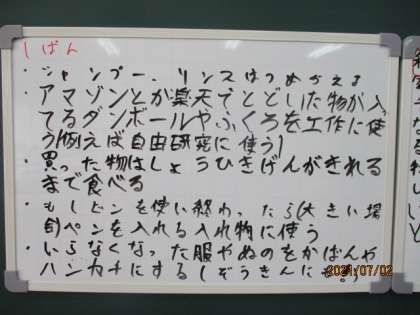 しはん
・シャンプー、リンスはつめかえする
・アマゾンとか楽天でとどいた物が入
てるダンボールやふくろを工作に使
う(例えば自由研究に使う)
・買った物はしょうひきげんがきれる
まで食べる
・もしビンを使い終わったら(大きい場
合)ペンを入れる入れ物に使う
・いらなくなった服やぬのをかばんや
ハンカチにする(ぞうきんにも
2021/07/02